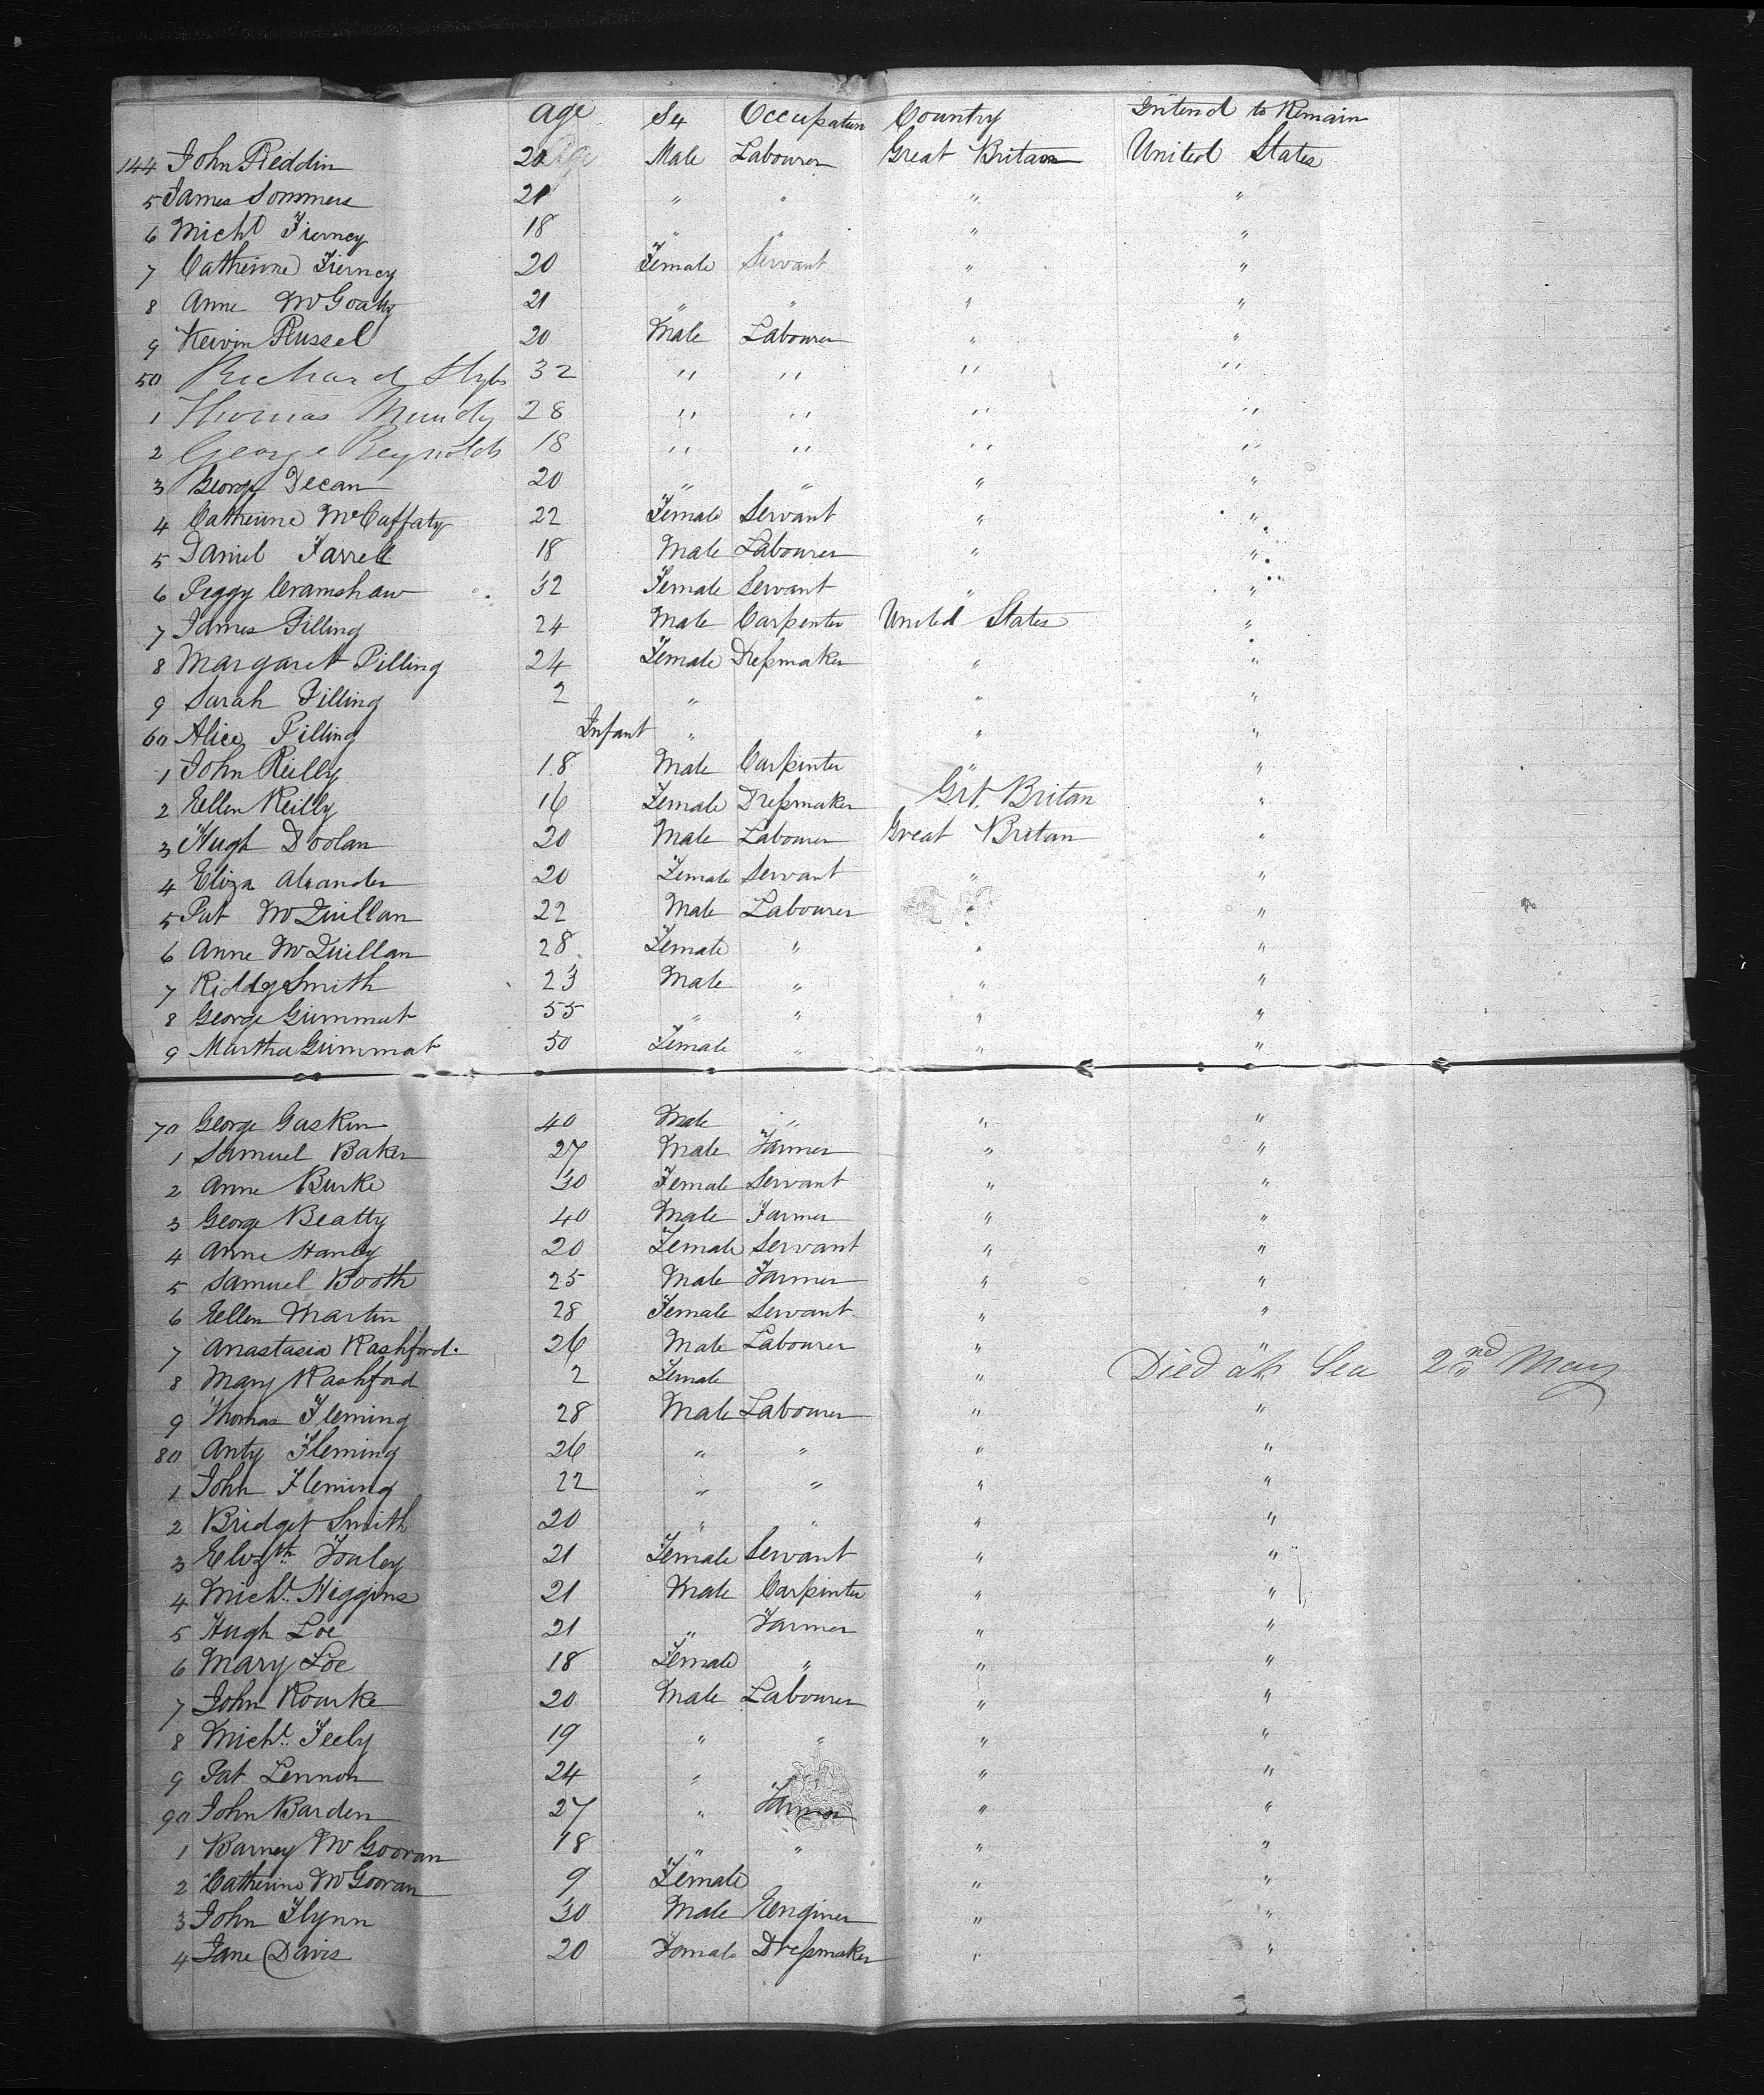 Age Sex Occupation Country Intend to Remain
144 John Reddin 20 Male Labourer Great Britain United States
5 James Sommers 21 " " " "
6 Michl Tierney 18 " " " "
7 Catherine Tierney 20 Female Servant " "
8 Anne 21 " " " "
9 Kevin Russel 20 Male Labourer " "
50 Richard 32 " " " "
1 Thomas Mundy 28 " " " "
2 George Reynolds 18 " " " "
3 George Deean 20 " " " "
4 Catherine McCaffaty 22 Female Servant " "
5 Daniel Farrell 18 Male Labourer " "
6 Peggy Cramshaw 32 Female Servant " "
7 James Pilling 24 Male Carpenter United States "
8 Margaret Pilling 24 Female Dressmaker " "
9 Sarah Pilling 2 " " "
60 Alice Pilling Infant " " "
1 John Reilly 18 Male Carpinter " "
2 Ellen Reilly 16 Female Dressmaker Grt Britan "
3 Hugh Doolan 20 Male Labourer Great Britan "
4 Eliza 20 Female Servant " "
5 Pat McQuillan 22 Male Labourer " "
6 Anne McQuillan 28 Female " " "
7 Riddy Smith 23 Male " " "
8 George Gummat 55 " " " "
9 Martha Gummat 50 Female " " "
70 George Gaskin 40 Male " " "
1 Samuel Baker 27 Male Farmer " "
2 Anne Burke 30 Female Servant " "
3 George Beatty 40 Male Farmer " "
4 Anne Hanley 20 Female Servant " "
5 Samuel Booth 25 Male Farmer " "
6 Ellen Martin 28 Female Servant " "
7 Anastasia Rashford 26 Male Labourer " "
8 Mary Rashford 2 Female " Died at Sea 2nd May
9 Thomas Fleming 28 Male Labourer " "
80 Anty Fleming 26 " " " "
1 John Fleming 22 " " " "
2 Bridget Smith 20 " " " "
3 Elizth 21 Female Servant " "
4 Michl Higgins 21 Male Carpinter " "
5 Hugh Loe 21 " Farmer " "
6 Mary Loe 18 Female " " "
7 John Rourke 20 Male Labourer " "
8 Michl Feely 19 " " " "
9 Pat Lennon 24 " " " "
90 John Barden 27 " Farmer " "
1 Barney McGooran 18 " " " "
2 Catherine McGooran 9 Female " "
3 John Flynn 30 Male Enginer " "
4 Jane Davis 20 Female Dressmaker " "